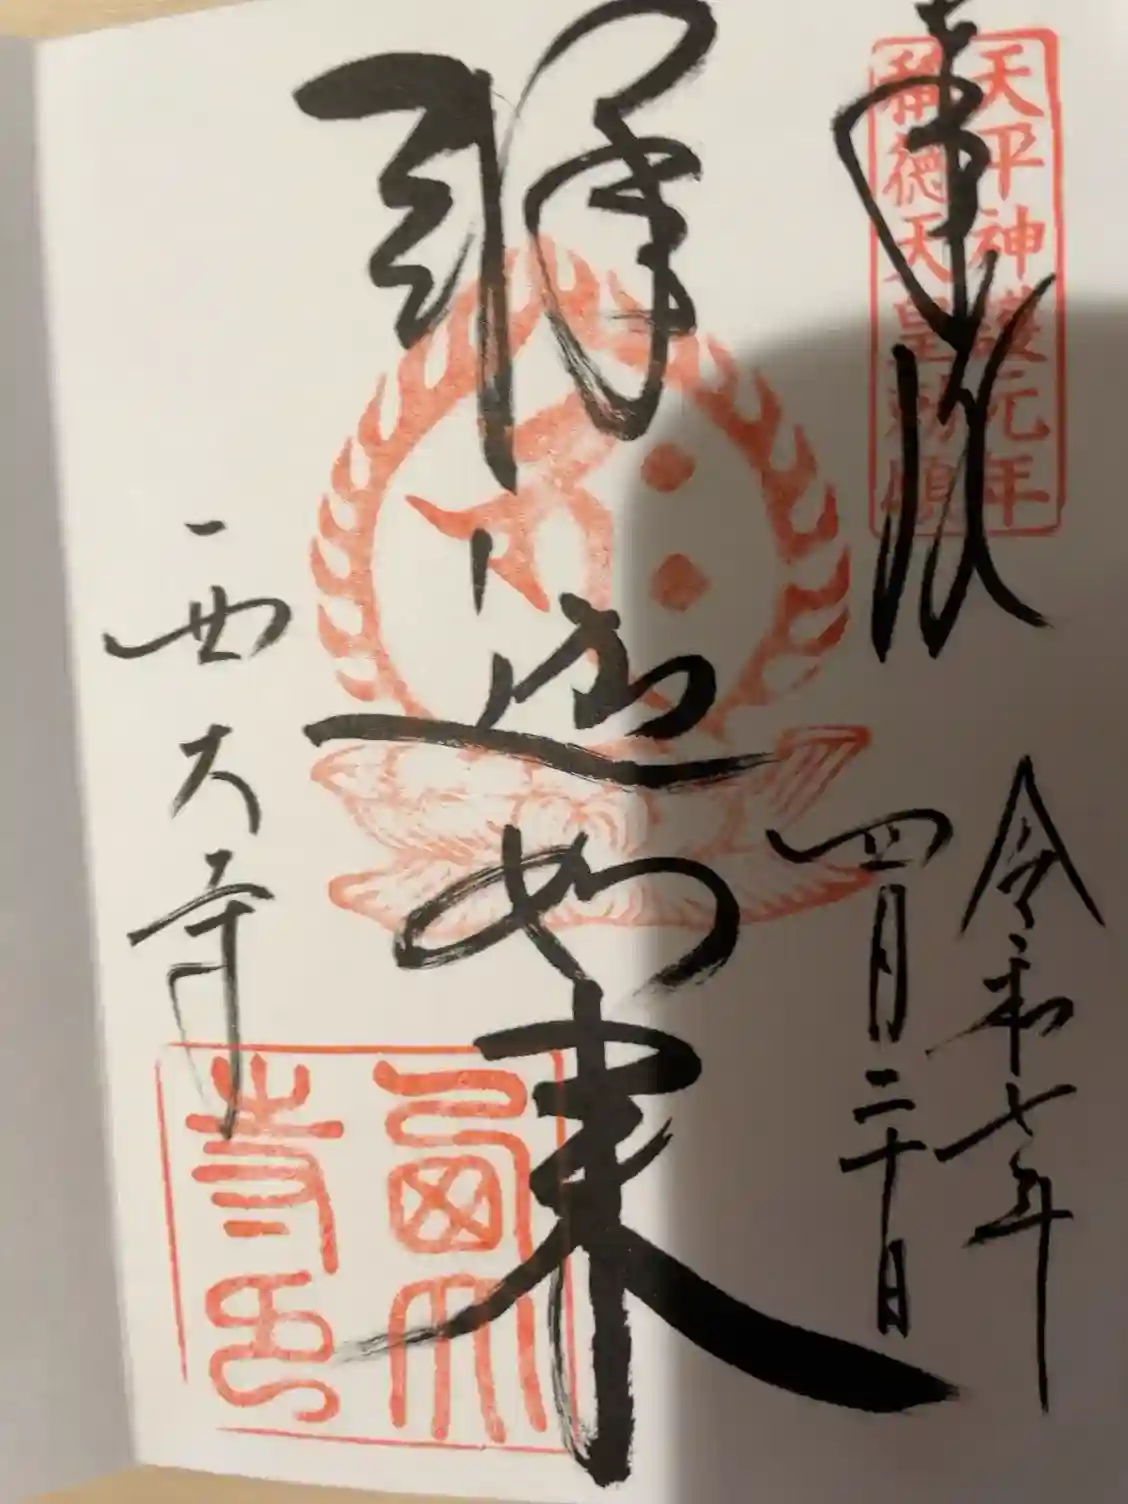 奉拝
天平神護元年
称徳天皇勅願
令和七年
四月二十日
釈迦如来
西大寺
西大寺印